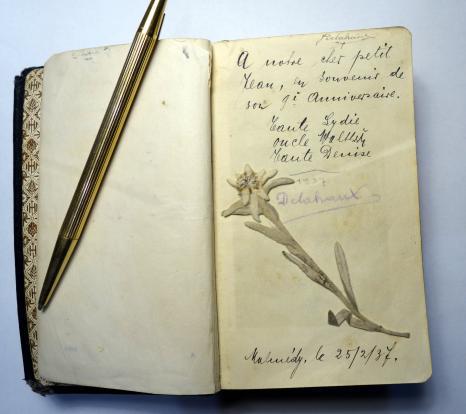 Delahaux
A notre cher petit
Jean, en souvenir de
son 9i Anniversaire.
Tante Lydie
oncle
Tante Denise
1937
Delahaux
Malmédy, le 25/2/37.